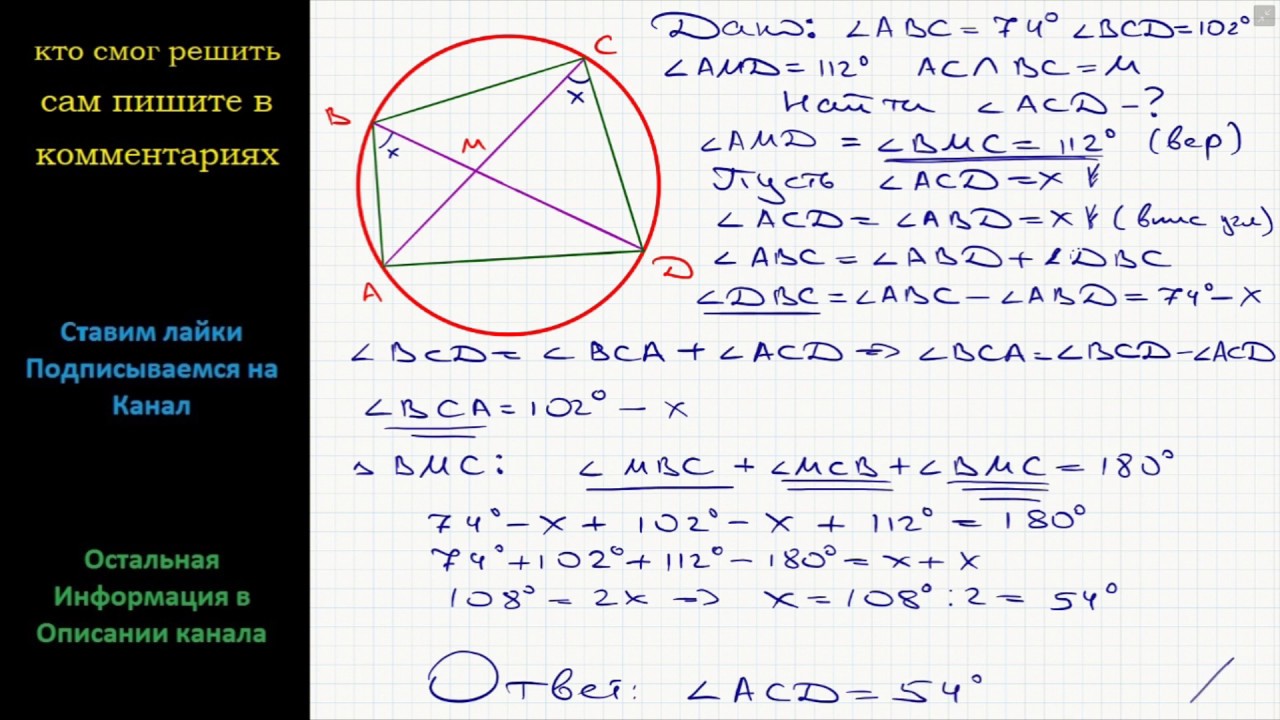 кто смог решить
сам пишите в
комментариях
Ставим лайки
Подписываемся на
Канал
Остальная
Информация в
Описании канала
B
C
A
D
M
x
x
Дано: ∠ABC = 74° ∠BCD = 102°
∠AMD = 112° AC ∩ BC = M
Найти ∠ACD - ?
∠AMD = ∠BMC = 112° (вер)
Пусть ∠ACD = x
∠ACD = ∠ABD = x (впис угл)
∠ABC = ∠ABD + ∠DBC
∠DBC = ∠ABC - ∠ABD = 74° - x
∠BCD = ∠BCA + ∠ACD => ∠BCA = ∠BCD - ∠ACD
∠BCA = 102° - x
△ BMC: ∠MBC + ∠MCB + ∠BMC = 180°
74° - x + 102° - x + 112° = 180°
74° + 102° + 112° - 180° = x + x
108° = 2x => x = 108° : 2 = 54°
Ответ: ∠ACD = 54°